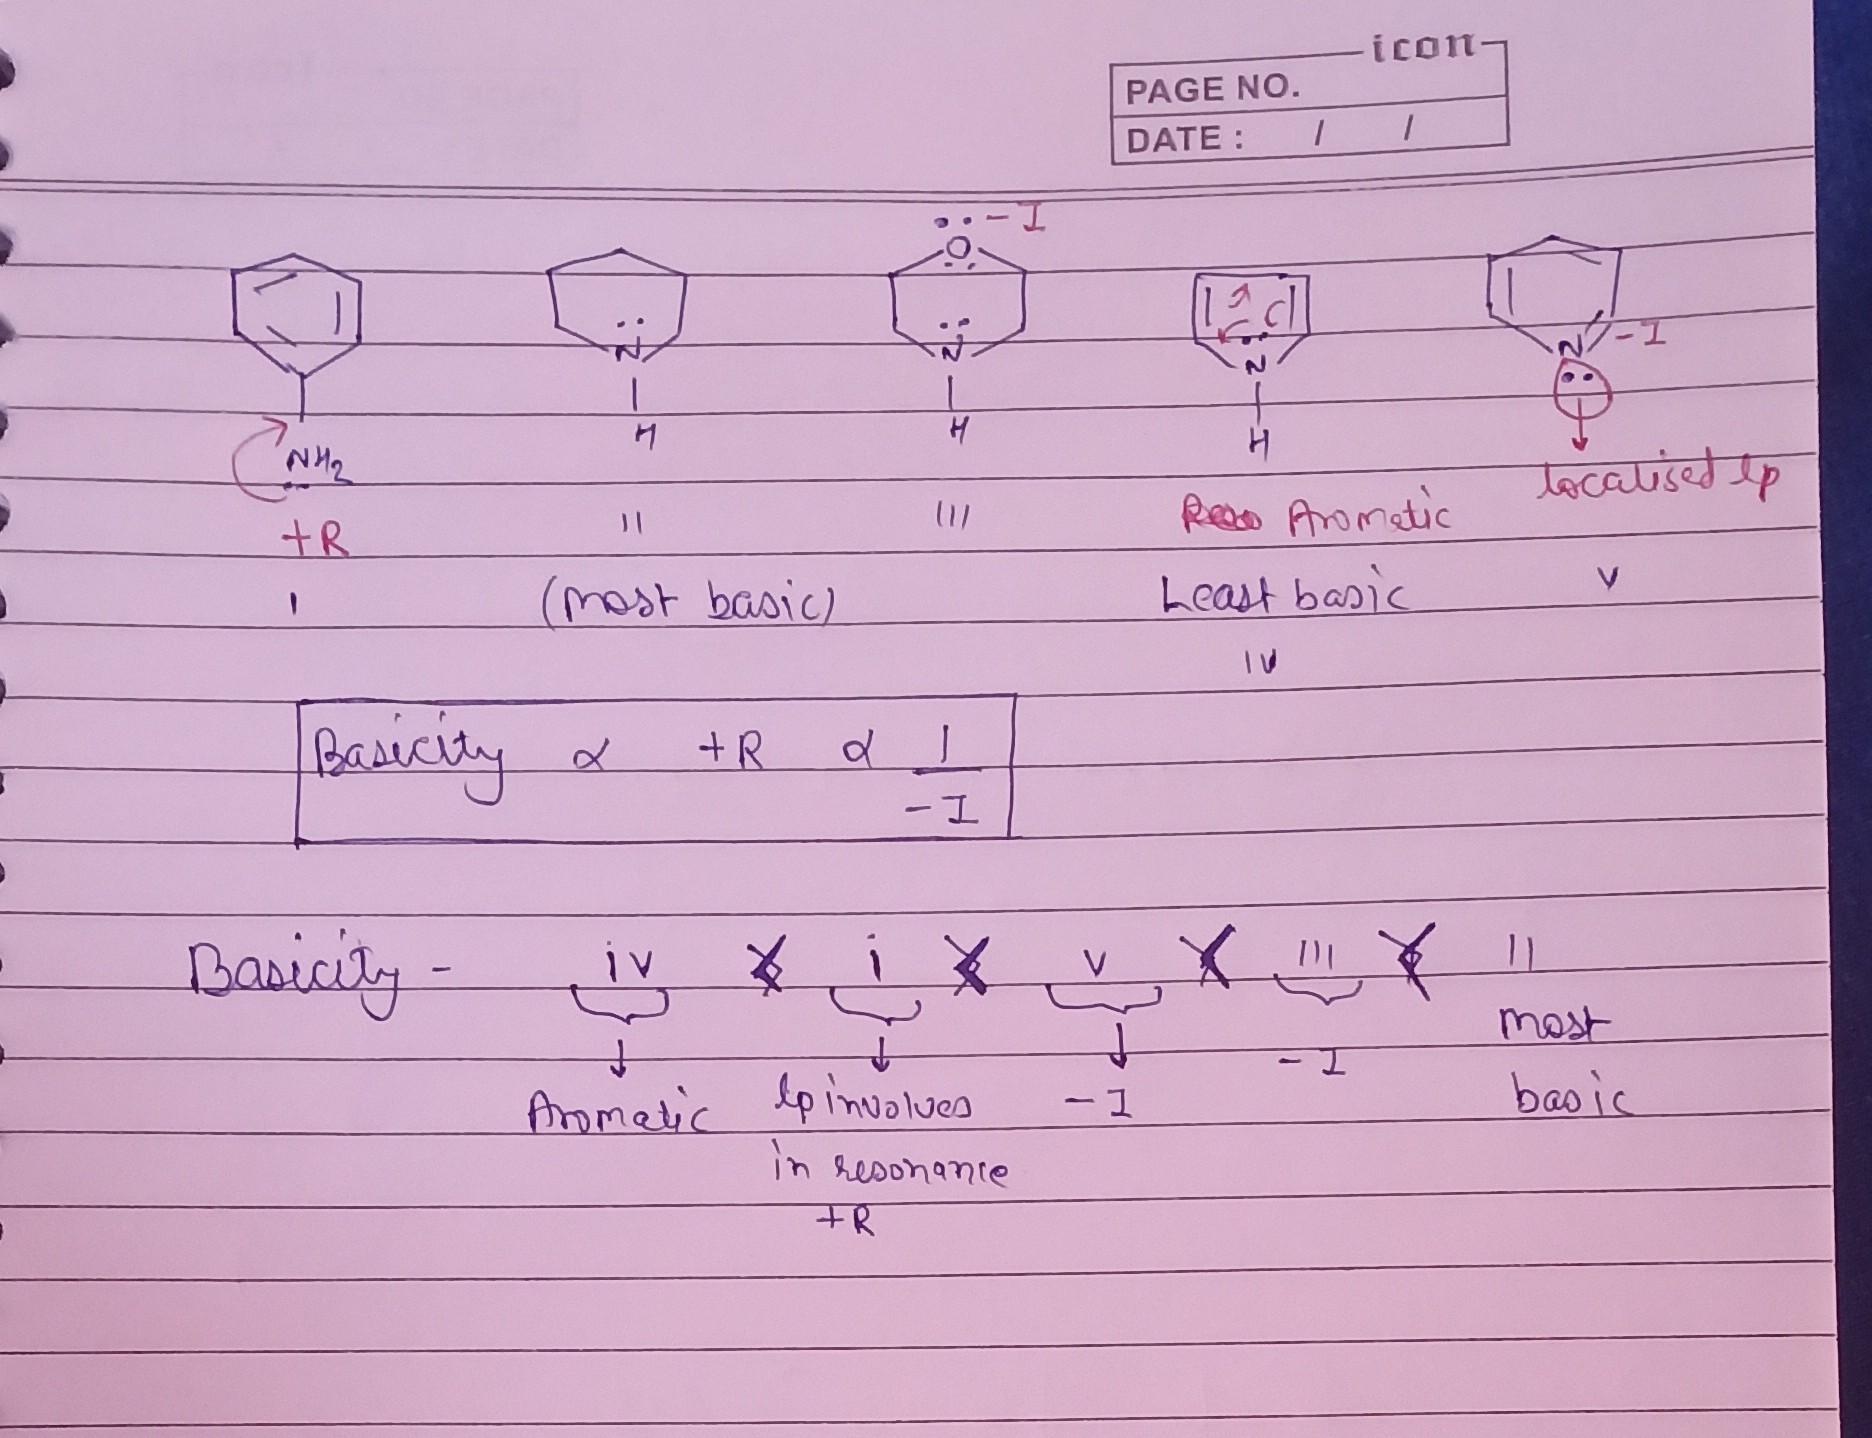 icon
PAGE NO.
DATE : / /
-I
O
N N N N -I
H H H H
NH2
localised lp
+R II III Aromatic
I (most basic) Least basic V
IV
Basicity ∝ +R ∝ 1
-I
Basicity - iv < i < v < III < II
most
-I
Aromatic lp involves -I basic
in resonance
+R